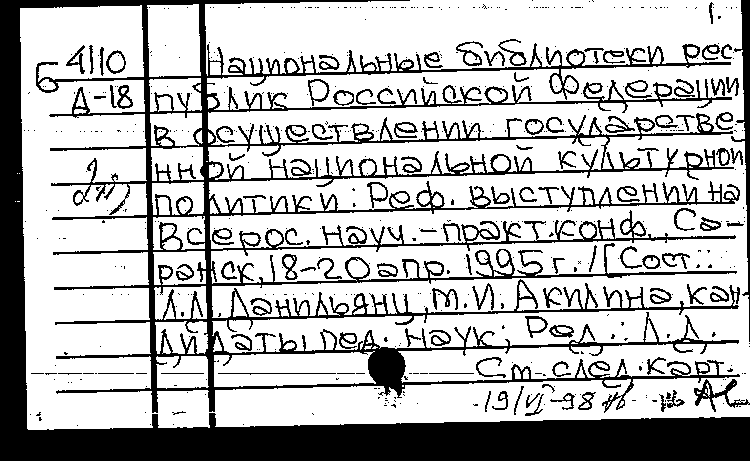 1.
Б 4110 Национальные библиотеки рес-
Д-18 публик Российской Федерации
в осуществлении государстве-
нной национальной культурной
политики: Реф. выступлений на
Всерос. науч.-практ. конф., Са-
ранск, 18-20 апр. 1995 г. / [Сост.:
Л.Л. Данильянц, М.И. Акилина, кан-
дидаты пед. наук; Ред.: Л.Д.
См. след. карт.
19/VI-98